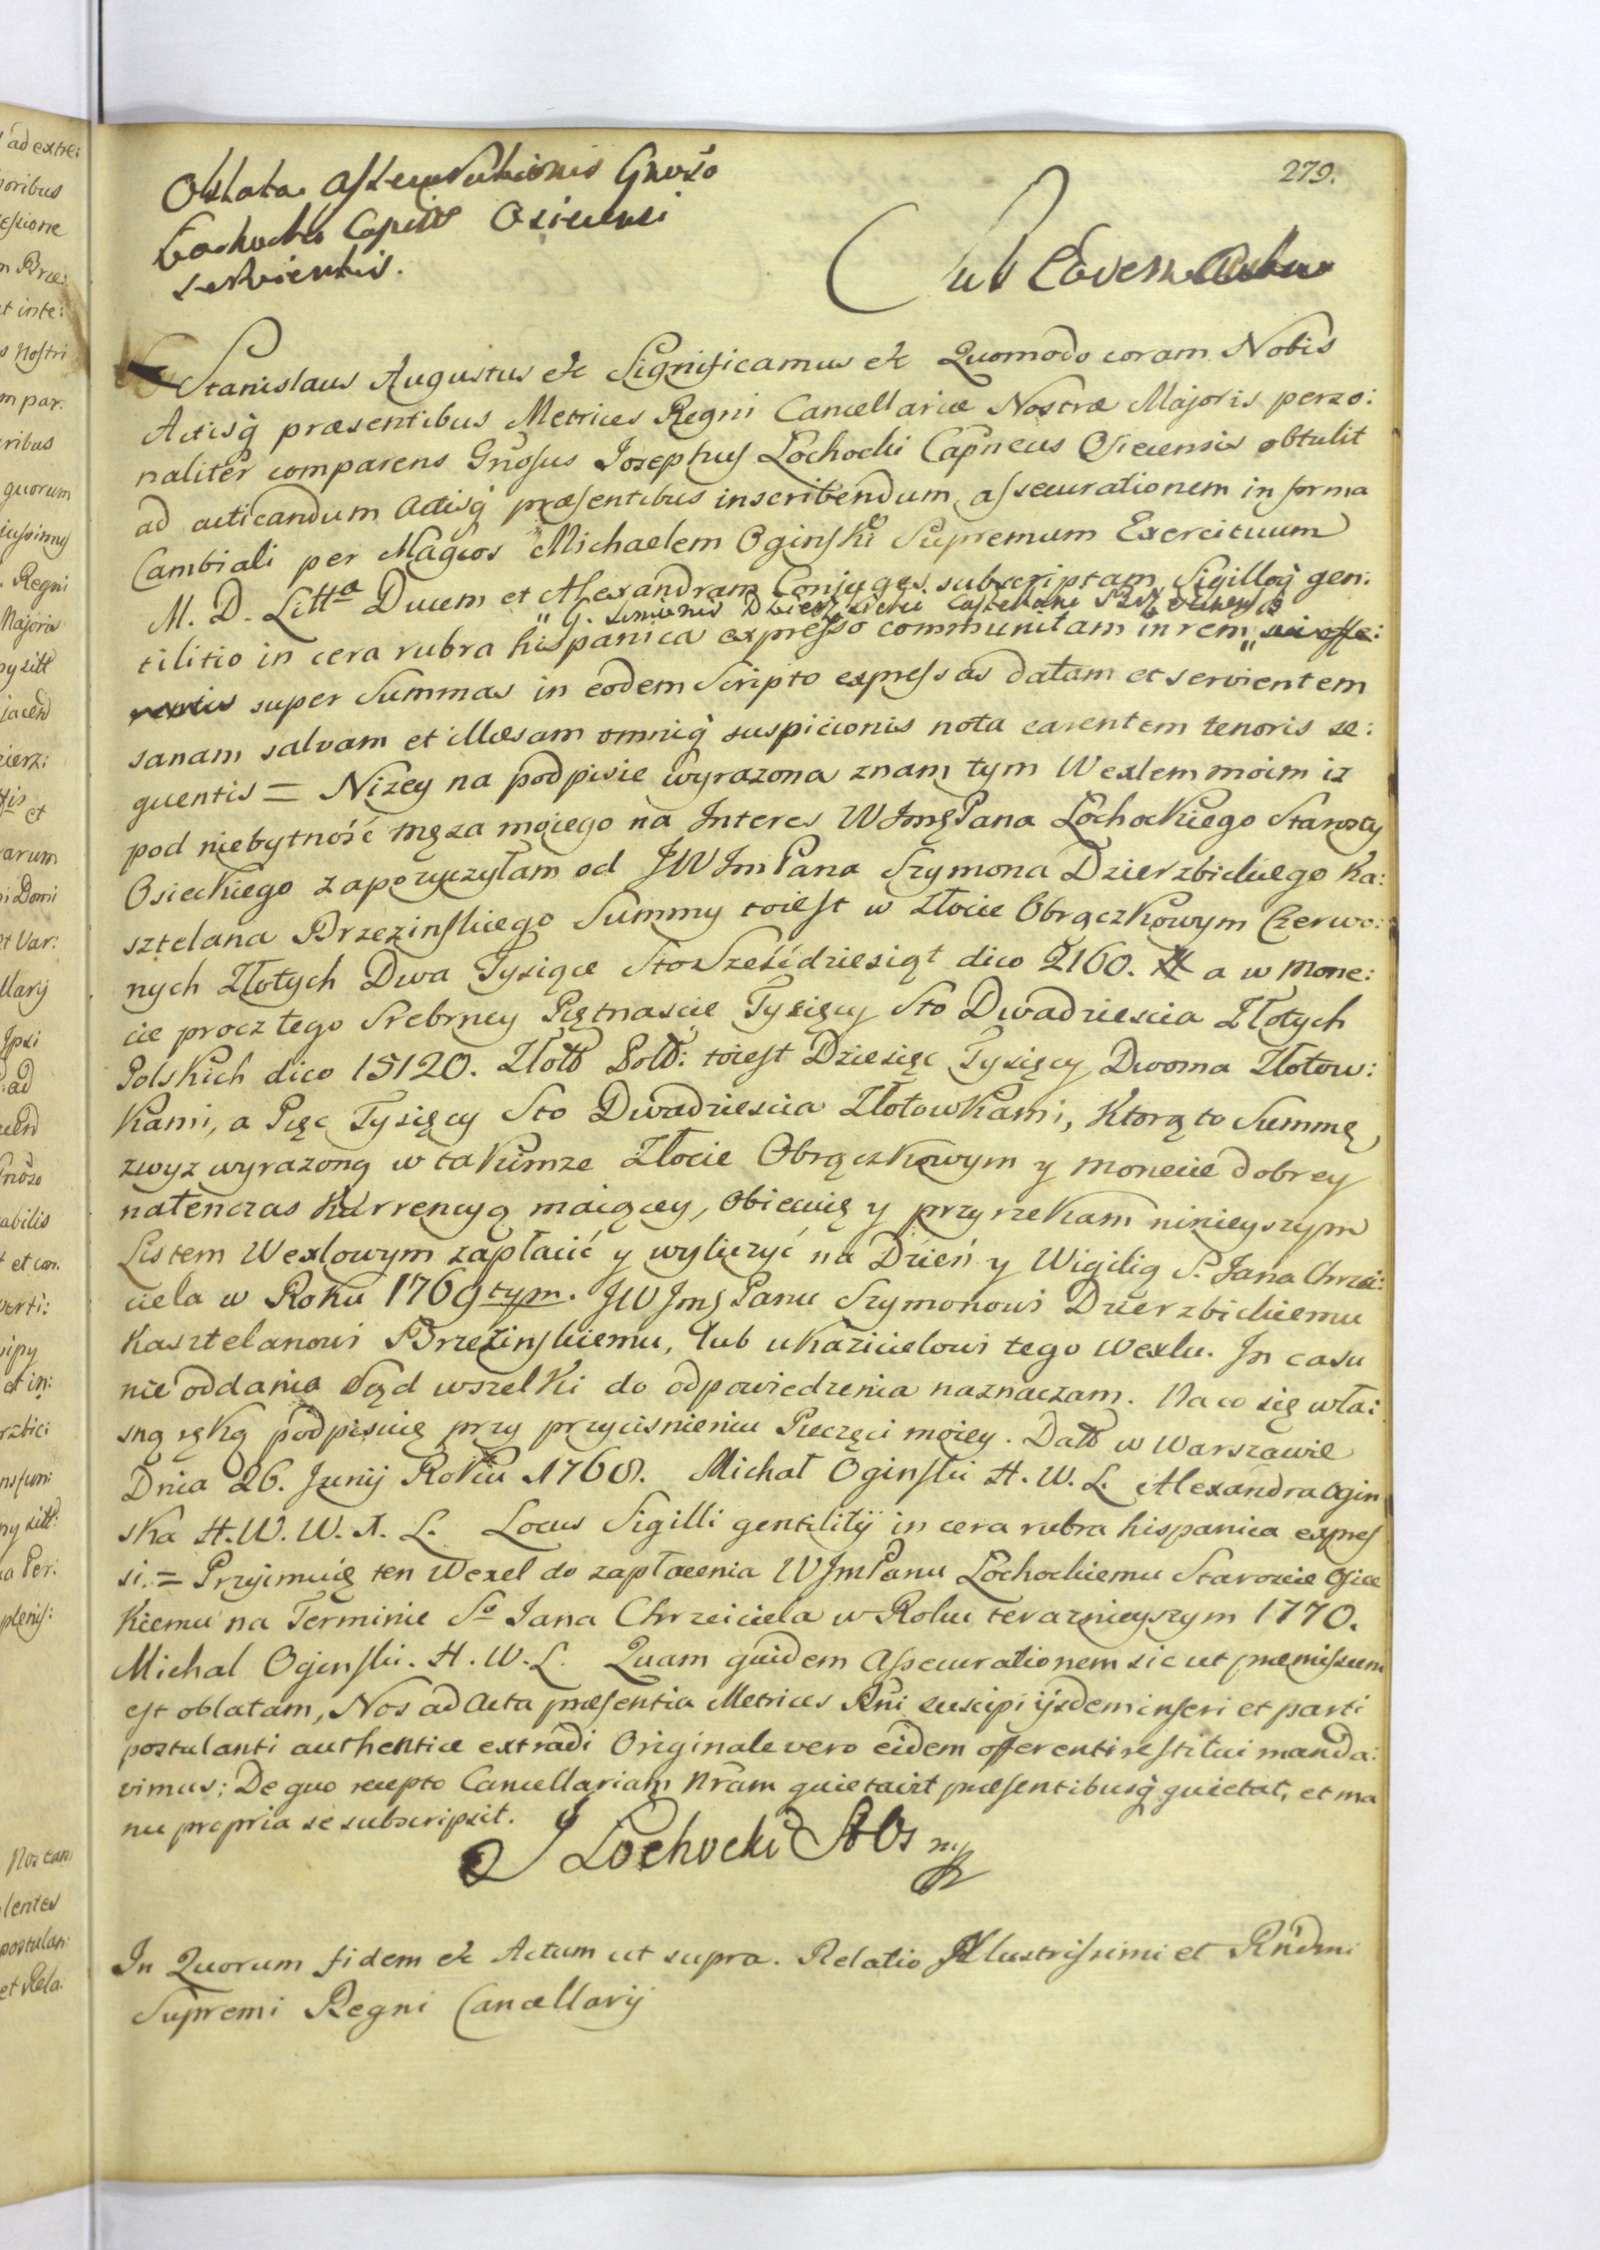 279.
Oblata Assecurationis Gnoso
Łochocki Capitt Osiecensi
servientis.
Sub Eodem Actu
Stanislaus Augustus etc Significamus etc Quomodo coram Nobis
Actisq̀ præsentibus Metrices Regni Cancellariæ Nostræ Majoris perso:
naliter comparens Gnosus Josephus Łochocki Capneus Osiecensis obtulit
ad acticandum Actisq̀ præsentibus inscribendum assecurationem in forma
Cambiali per Magcos Michaelem Oginski Supremum Exercituum
M. D. Litta Ducem et Alexandram Conjuges subscriptam, Sigilloq̀ gen:
" G. Simonis Dzierzbicki Castellani
tilitio in cera rubra hispanica expresso communitam in rem " sui offe:
rentis super Summas in eodem Scripto expressas datam et servientem
sanam salvam et illæsam omniq̀ suspicionis nota carentem tenoris se:
quentis = Nizey na podpisie wyrazona znam tym Wexlem moim iz
pod niebytność męza moiego na Interes WJmę Pana Łochockiego Starosty
Osieckiego zapozyczyłam od JWJm Pana Szymona Dzierzbickiego Ka:
sztelana Brzezinskiego Summy toiest w Złocie Obrączkowym Czerwo:
nych Złotych Dwa Tysiące Sto Sześćdziesiąt dico 2160. a w mone:
cie procz tego Srebrney Piętnascie Tysięcy Sto Dwadziescia Złotych
Polskich dico 15120. Złott Poll: toiest Dziesięc Tysięcy Dwoma Złotow:
kami, a Pięc Tysięcy Sto Dwadziescia Złotowkami, ktorą to Summę
zwyz wyrazoną w takimze Złocie Obrączkowym y monecie dobrey
natenczas Kurrencyą maiącey, obiecuię y przyrzekam ninieyszym
Listem Wexlowym zapłacić y wyliczyć na Dzień y Wigilią S. Jana Chrzci:
ciela w Roku 1769tym. JWJmę Panu Szymonowi Dzierzbickiemu
Kasztelanowi Brzezinskiemu, lub ukazicielowi tego Wexlu. In casu
nie oddania Sąd wszelki do odpowiedzenia naznaczam. Na co się włas:
ną ręką podpisuię przy przycisnieniu Pieczęci moiey. Datt w Warszawie
Dnia 26. Junij Roku 1768. Michał Oginski H. W. L. Alexandra Ogin
ska H. W. W. X. L. Locus Sigilli gentilitij in cera rubra hispanica expres
si. = Przyimuię ten Wexel do zapłacenia WJm Panu Łochockiemu Staroscie Osiec
kiemu na Terminie So Jana Chrzciciela w Roku teraznieyszym 1770.
Michał Oginski. H. W. L. Quam quidem Assecurationem sic ut præmissum
est oblatam, Nos ad Acta præsentia Metrices Rni suscipi ijsdem inseri et parti
postulanti authentice extradi Originale vero eidem offerenti restitui manda:
vimus: De quo recepto Cancellariam Nram quietavit præsentibusq̀ quietat, et ma
nu propria se subscripsit.
J Łochocki StOs mp
In Quorum fidem etc Actum ut supra. Relatio Illustrissimi et Rndmi
Supremi Regni Cancellarij